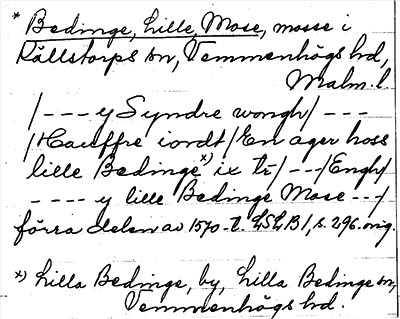 * Bedinge, Lille, Mose, mosse i
Källstorps sn, Vemmenhögs hd,
Malm. l.
/--- y Syndre wongh/---
/Hauffre iordt/En ager hoss
lille Bedinge x) ix tr/---/Engh/
---- y lille Bedinge Mose --/
förra delen av 1570-t. LSLB1, s. 296. orig.
x) Lilla Bedinge, by, Lilla Bedinge sn,
Vemmenhögs hd.